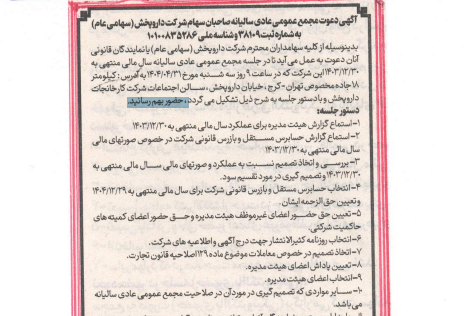 آگهی دعوت مجمع عمومی عادی سالیانه صاحبان سهام شرکت داروپخش (سهامی عام)
به شماره ثبت ۳۸۱۰۹ و شناسه ملی ۱۰۱۰۰۸۳۵۲۸۶
بدینوسیله از کلیه سهامداران محترم شرکت داروپخش (سهامی عام) یا نمایندگان قانونی
آنان دعوت به عمل می‌آید تا در جلسه مجمع عمومی عادی سالیانه سال مالی منتهی به
۱۴۰۳/۱۲/۳۰ این شرکت که در ساعت ۹ روز سه شنبه مورخ ۱۴۰۴/۰۴/۳۱ به آدرس: کیلومتر
۱۸ جاده مخصوص تهران - کرج، خیابان داروپخش، سالن اجتماعات شرکت کارخانجات
داروپخش و با دستور جلسه به شرح ذیل تشکیل می گردد، حضور بهم رسانید.
دستور جلسه:
۱- استماع گزارش هیئت مدیره برای عملکرد سال مالی منتهی به ۱۴۰۳/۱۲/۳۰
۲- استماع گزارش حسابرس مستقل و بازرس قانونی شرکت در خصوص صورتهای مالی
سال مالی منتهی به ۱۴۰۳/۱۲/۳۰
۳- بررسی و اتخاذ تصمیم نسبت به عملکرد و صورتهای مالی سال مالی منتهی به
۱۴۰۳/۱۲/۳۰ و تصمیم گیری در مورد تقسیم سود.
۴- انتخاب حسابرس مستقل و بازرس قانونی شرکت برای سال مالی منتهی به ۱۴۰۴/۱۲/۲۹
و تعیین حق الزحمه ایشان.
۵- تعیین حق حضور اعضای غیرموظف هیئت مدیره و حق حضور اعضای کمیته های
حاکمیت شرکتی.
۶- انتخاب روزنامه کثیرالانتشار جهت درج آگهی و اطلاعیه های شرکت.
۷- اتخاذ تصمیم در خصوص معاملات موضوع ماده ۱۲۹ اصلاحیه قانون تجارت.
۸- تعیین پاداش اعضای هیئت مدیره.
۹- انتخاب اعضای هیئت مدیره.
۱۰- سایر مواردی که تصمیم گیری در مورد آن در صلاحیت مجمع عمومی عادی سالیانه
می باشد.